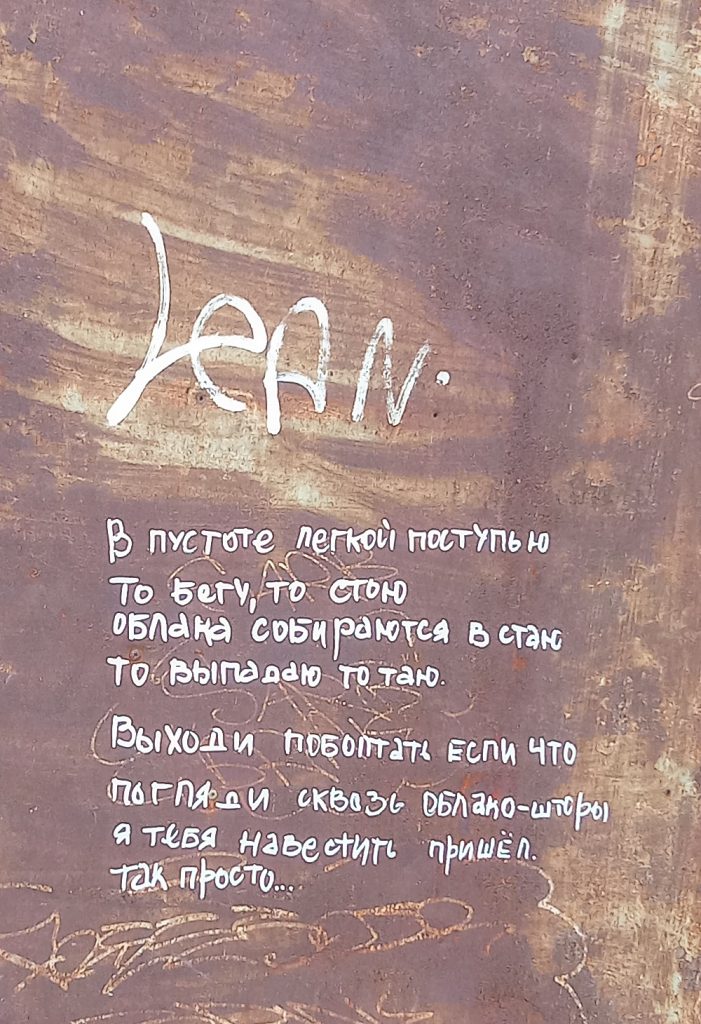 Lean.
В пустоте легкой поступью
то бегу, то стою
облака собираются в стаю
то выпадаю то таю.
Выходи поболтать если что
погляди сквозь облако-шторы
я тебя навестить пришёл.
так просто...